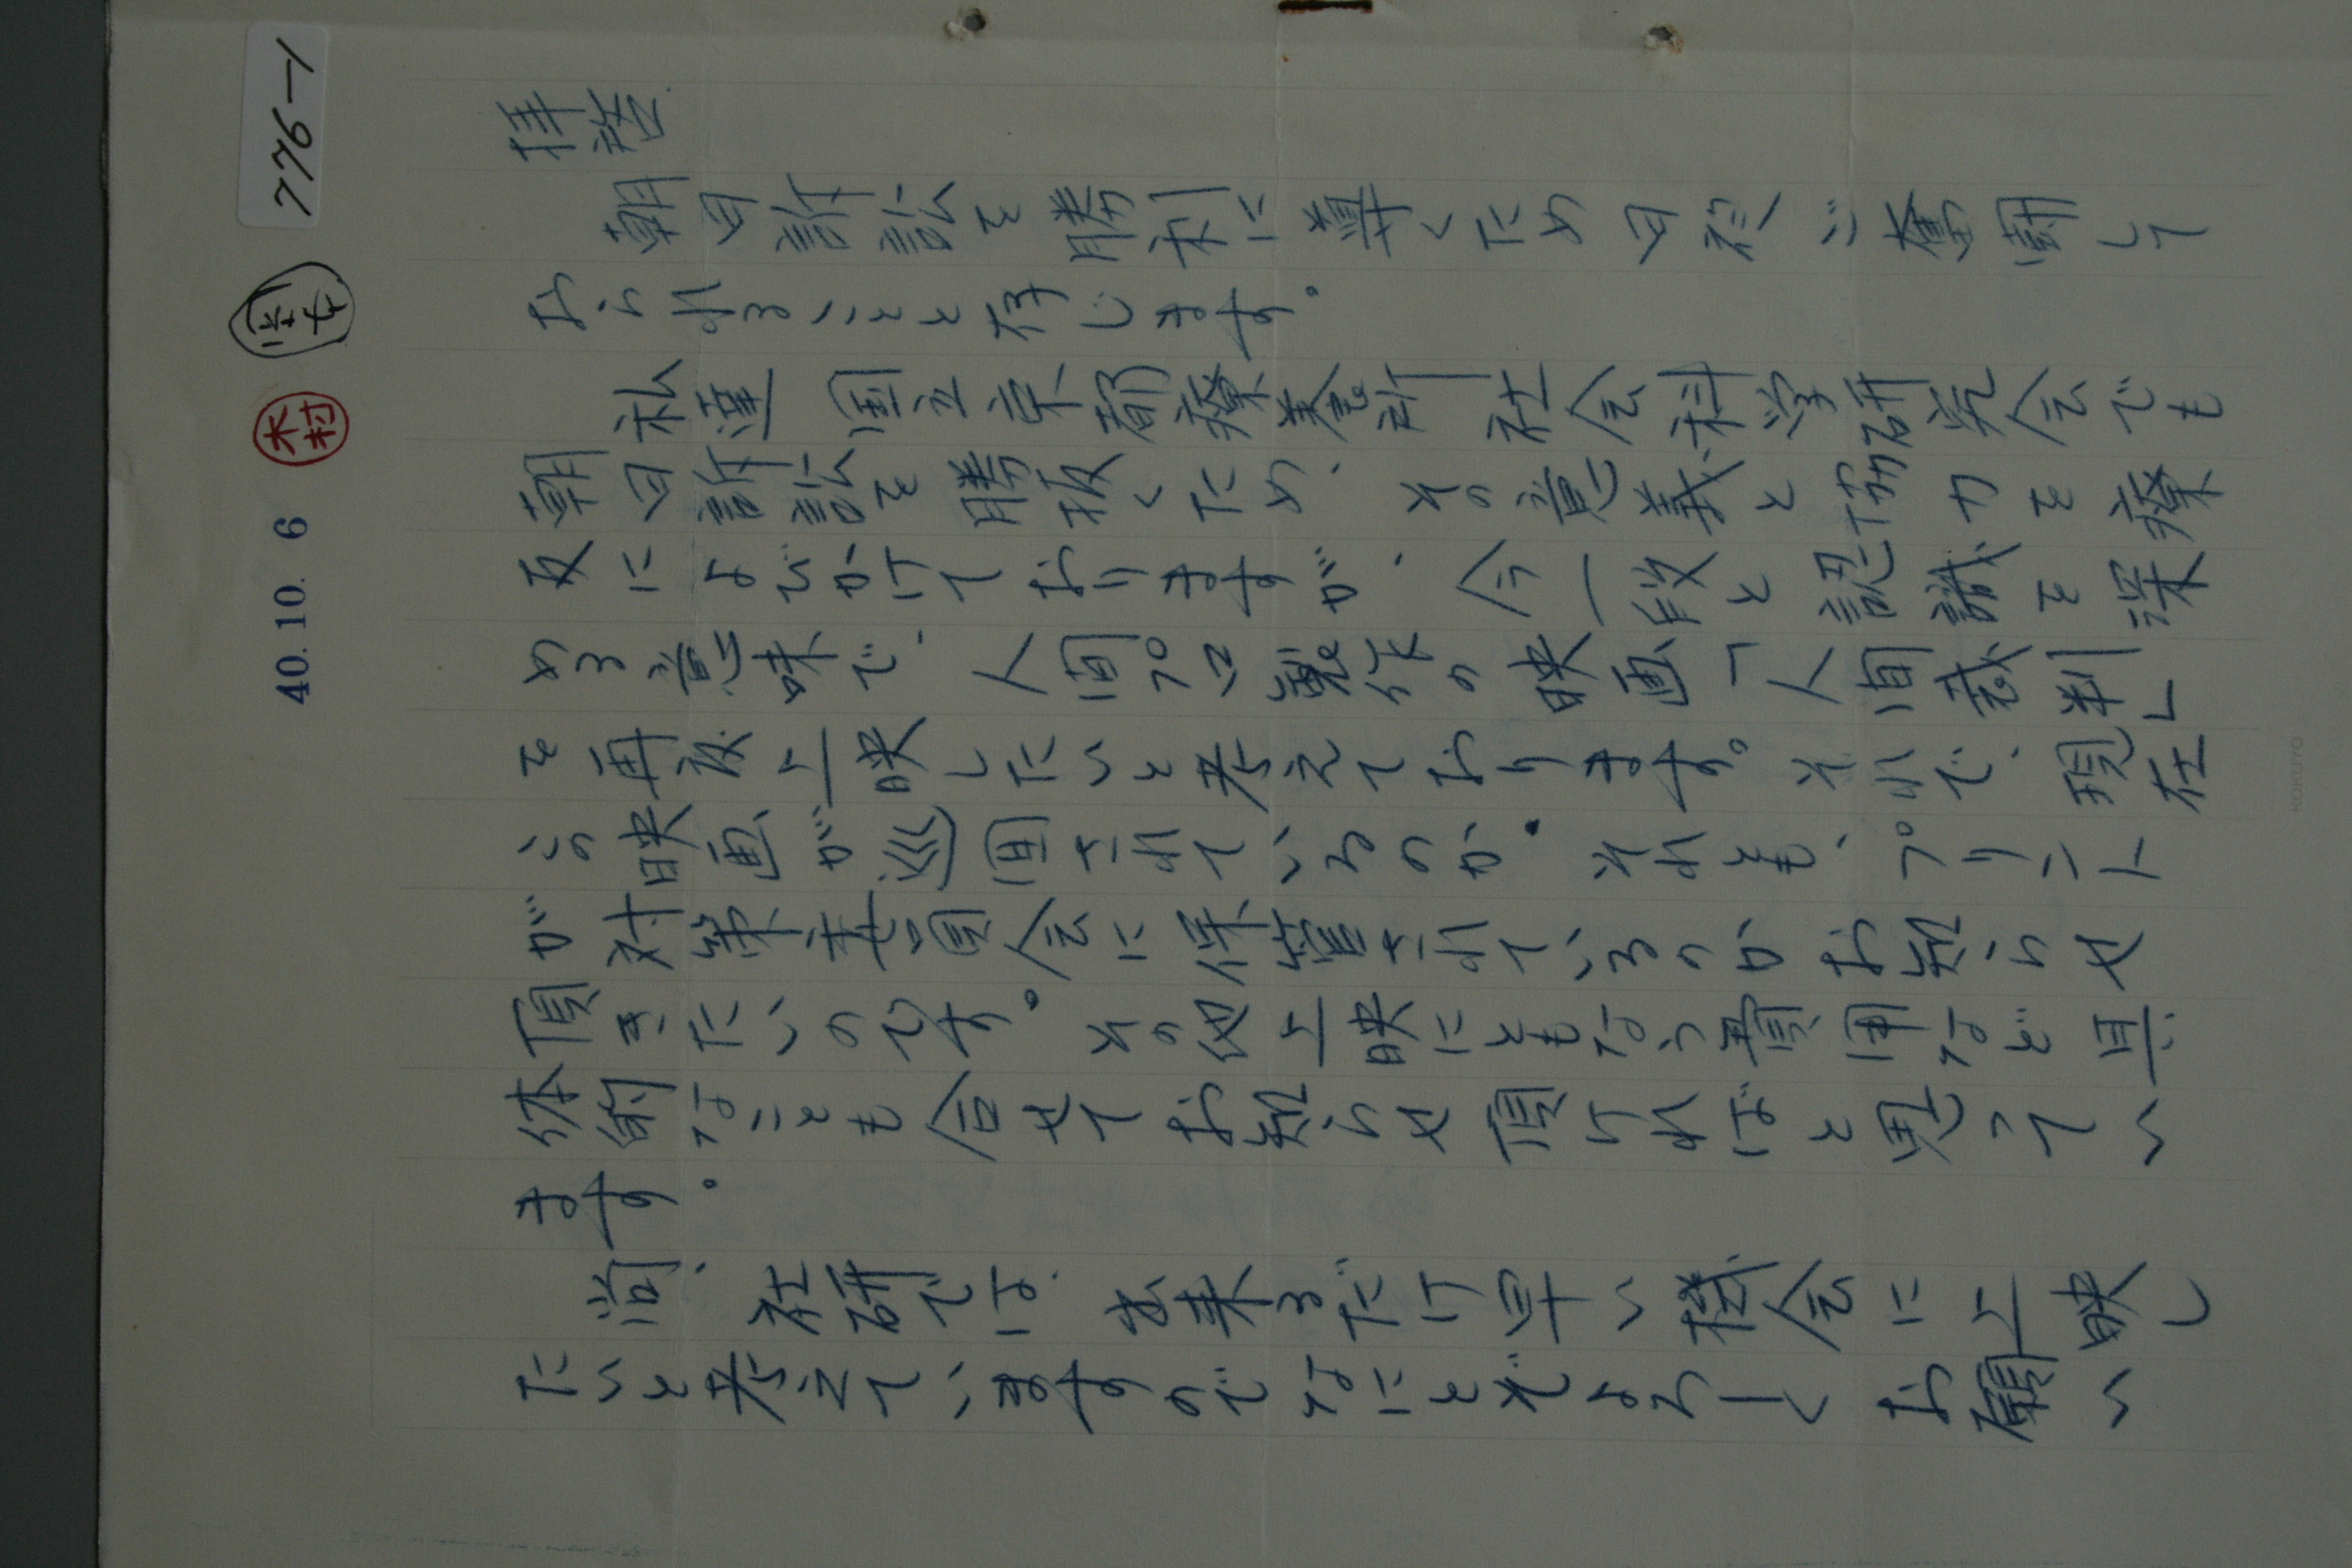 776-1
木村
40.10.6
拝啓
朝日訴訟を勝利に導くため日夜ご奮闘して
おられることと存じます。
私達国立京都療養所社会科学研究会でも
朝日訴訟を勝抜くため、その意義と協力を療
友によびかけておりますが、今一段と認識を深
める意味で、人間プロ製作の映画「人間裁判」
を再度上映したいと考えております。それで、現在
この映画が巡回されているのか、それとも、プリント
が対策委員会に保管されているのかお知らせ
頂きたいのです。その他上映にともなう費用など具
体的なことも合せてお知らせ頂ければと思ってい
ます。
尚、社研では、出来るだけ早い機会に上映し
たいと考えていますのでなにとぞよろしくお願い
KOKUYO